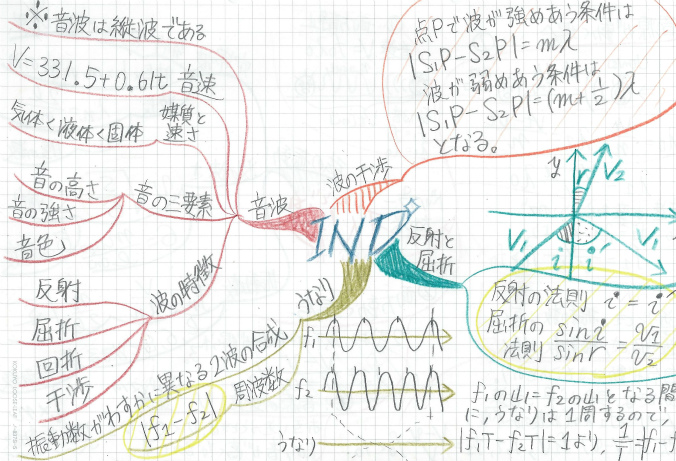 ※音波は縦波である
V=331.5+0.6t 音速
気体<液体<固体
媒質と
速さ
音の高さ
音の強さ
音色
音の三要素
音波
波の特徴
反射
屈折
回折
干渉
IND
波の干渉
点Pで波が強めあう条件は
|S₁P-S₂P|=mλ
波が弱めあう条件は
|S₁P-S₂P|=(m+1/2)λ
となる。
反射と
屈折
y
r
V₂
V₁
V₁
i
i′
反射の法則 i=i′
屈折の
法則
sin i/sin r = V₁/V₂
うなり
振動数がわずかに異なる2波の合成
周波数
|f₁-f₂|
f₁
f₂
うなり
f₁の山=f₂の山となる間
に,うなりは1周するので,
|f₁T-f₂T|=1より,